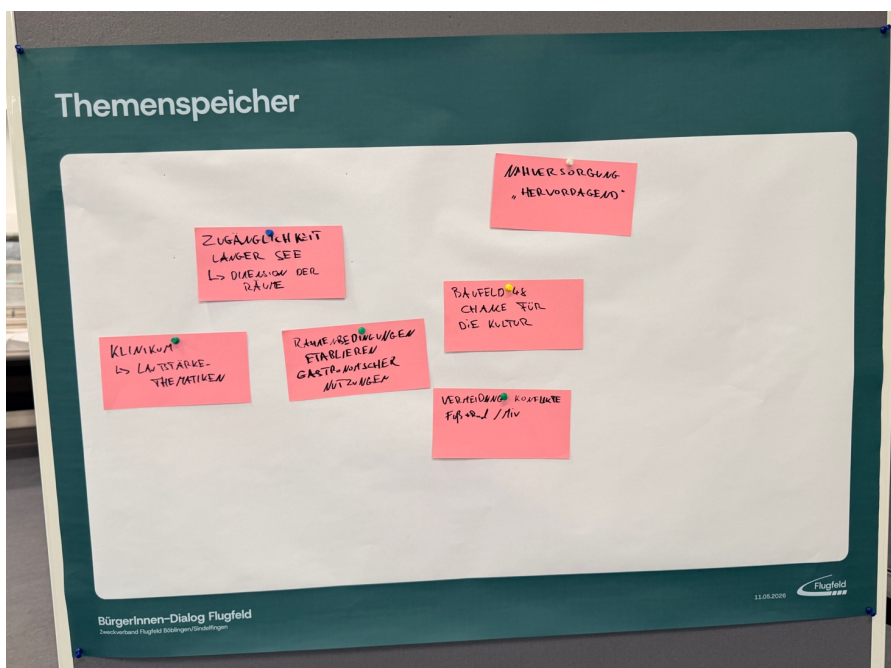 Themenspeicher
NAHVERSORGUNG
„HERVORRAGEND"
ZUGÄNGLICHKEIT
LANGER SEE
↳ DIMENSION DER
RÄUME
BAUFELD 48
CHANCE FÜR
DIE KULTUR
KLINIKUM
↳ LAUTSTÄRKE-
THEMATIKEN
RAHMENBEDINGUNGEN
ETABLIEREN
GASTRONOMISCHER
NUTZUNGEN
VERMEIDUNG KONFLIKTE
Fuß+Rad / MIV
11.05.2026
Flugfeld
BürgerInnen-Dialog Flugfeld
Zweckverband Flugfeld Böblingen/Sindelfingen